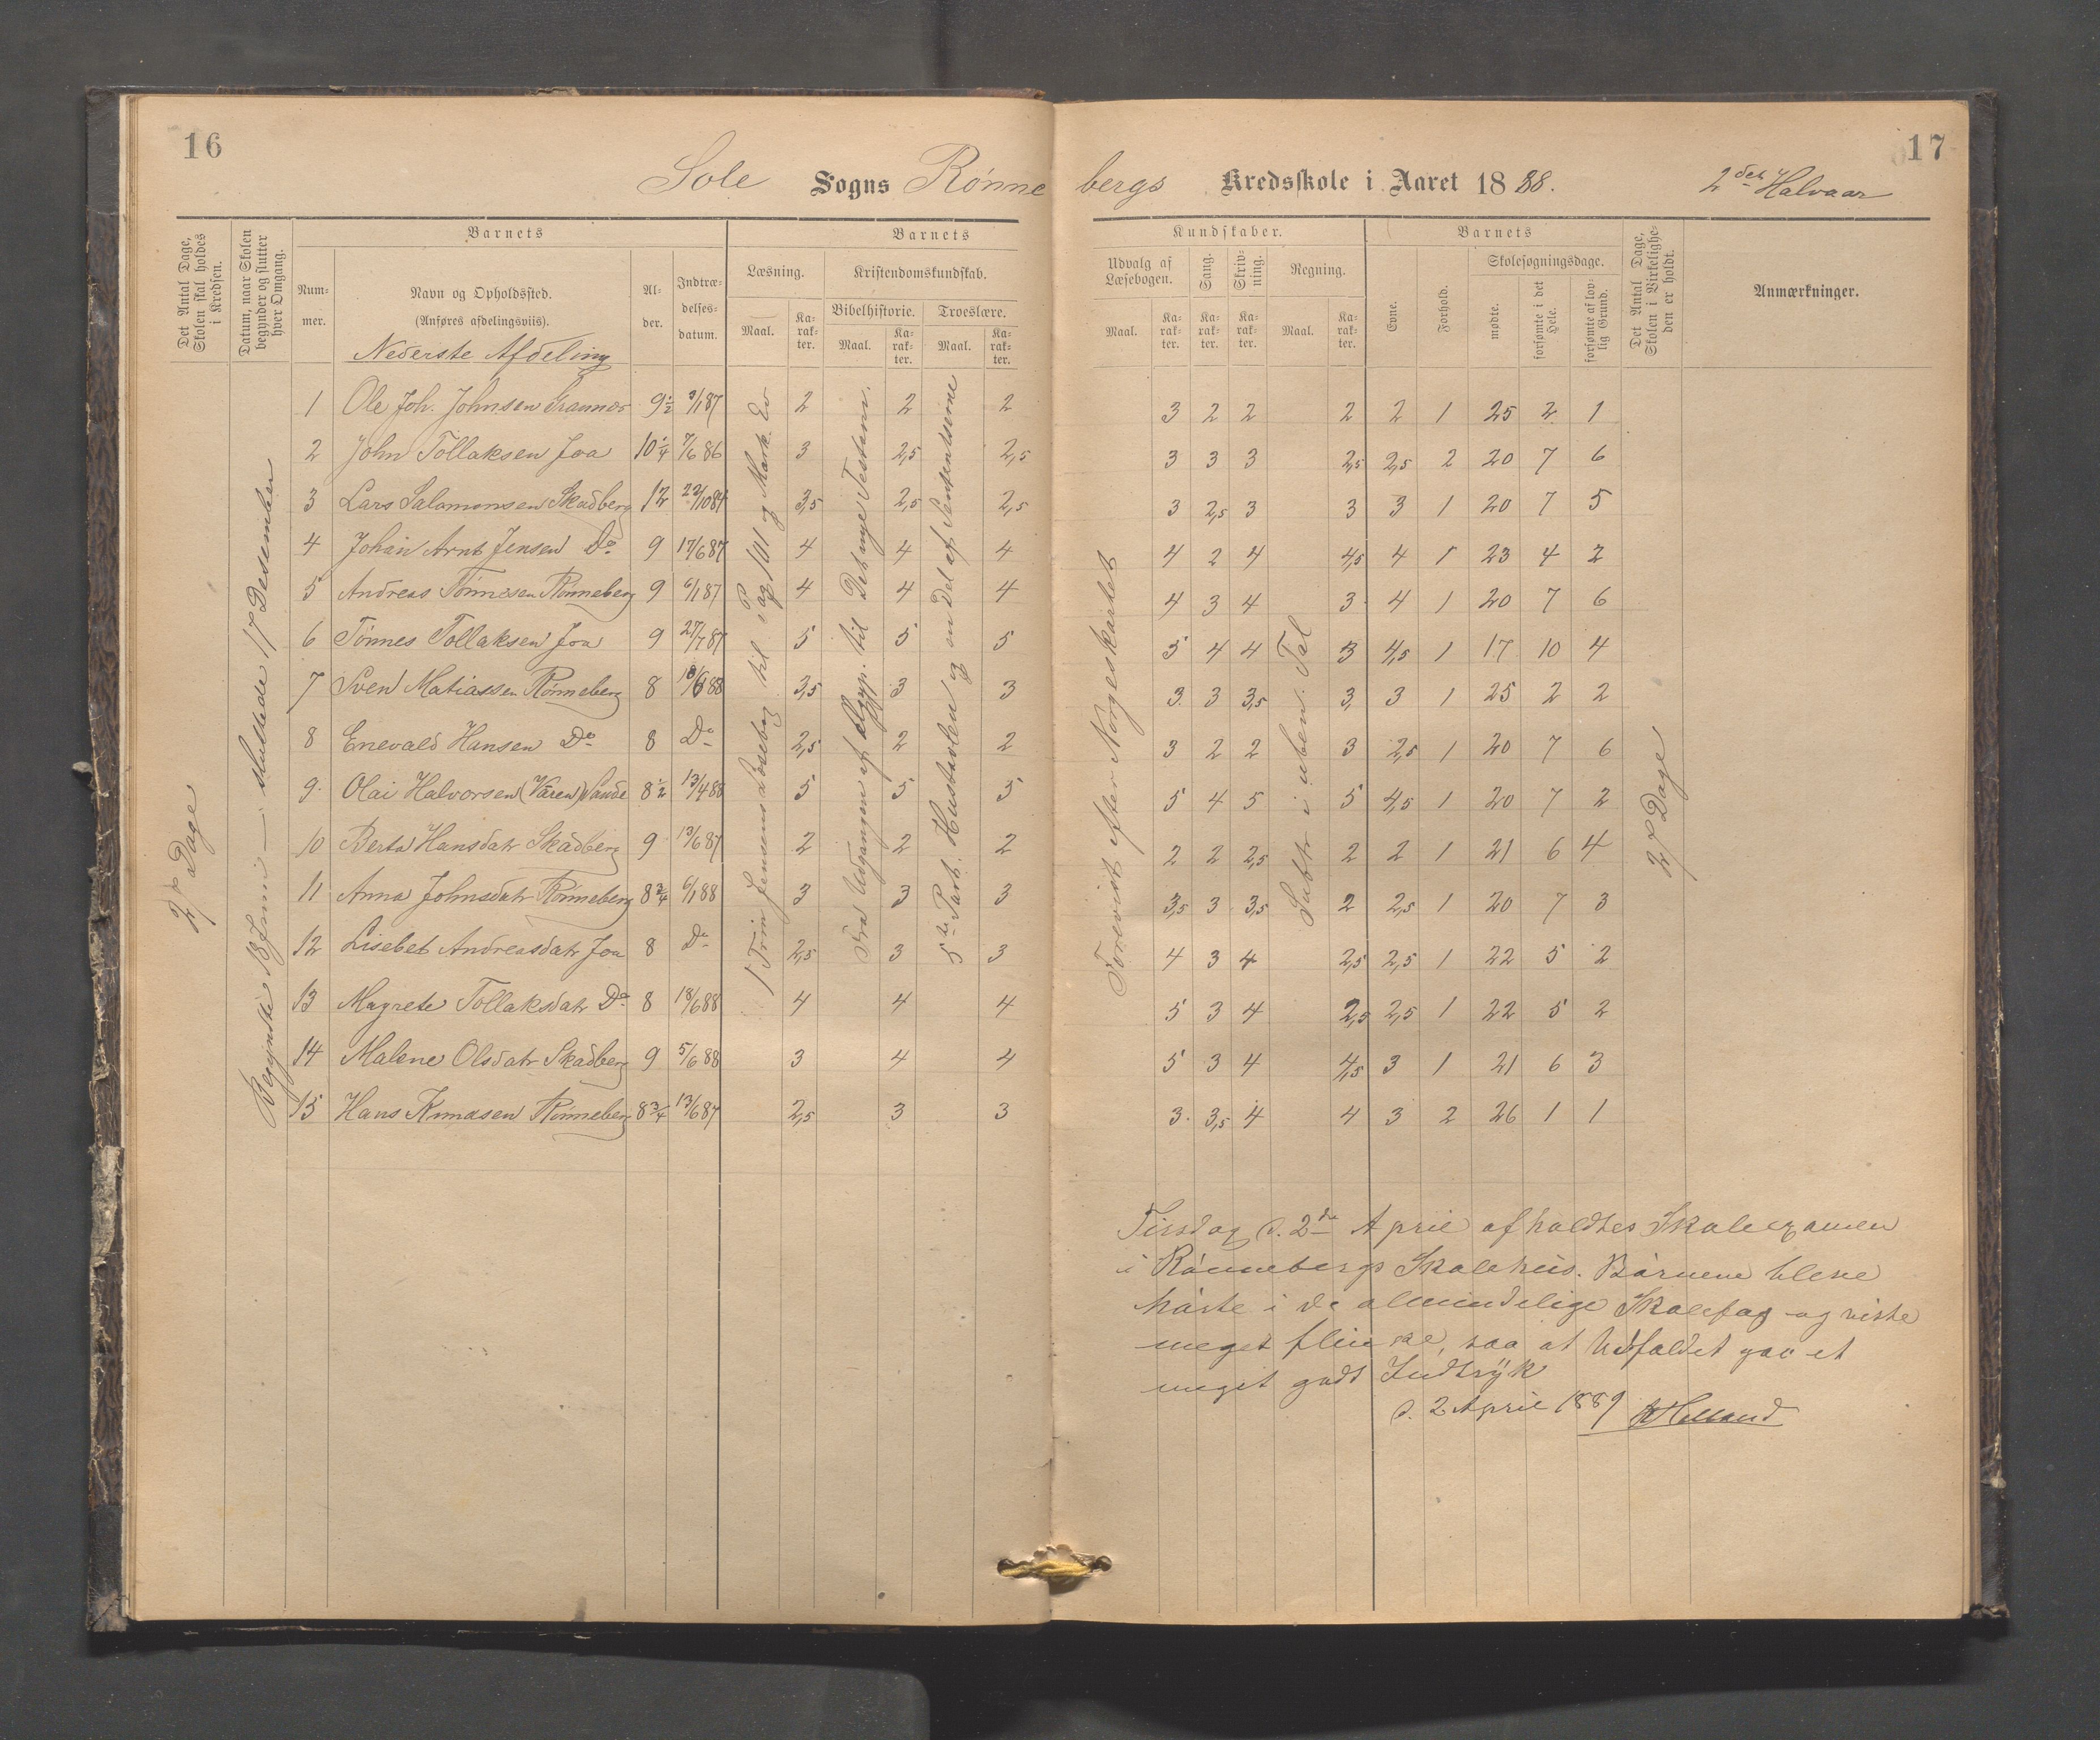 16
Sole Sogns Rønne
Det Antal Dage, Skolen skal holdes i Kredsen.
Datum, naar Skolen begynder og slutter hver Omgang.
Barnets
Barnets
Nummer.
Navn og Opholdssted.
(Anføres afdelingsviis).
Alder.
Indtrædelsesdatum.
Læsning.
Kristendomskundskab.
Bibelhistorie.
Troeslære.
Maal.
Karakter.
Maal.
Karakter.
Maal.
Karakter.
Nederste Afdeling
27 Dage
Begyndte 18 Juni — sluttede 17 Desember
1 Trin Jensens Læsebog til Pag 101 og Mark. Ev
Fra Udgangen af Ægyp. til Det nye Testam.
5te Part. Hustavlen og en Del af Sentsentserne
1 Ole Joh. Johnsen Grannes 9½ 3/1 87 2 2 2
2 John Tollaksen Joa 10¼ 7/6 86 3 2,5 2,5
3 Lars Salomonsen Skadberg 12 22/10 84 3,5 2,5 2,5
4 Johan Arnt Jensen Do 9 17/6 87 4 4 4
5 Andreas Tønnesen Rønneberg 9 6/1 87 4 4 4
6 Tønnes Tollaksen Joa 9 27/7 87 5 5 5
7 Sven Matiassen Rønneberg 8 18/6 88 3,5 3 3
8 Enevald Hansen Do 8 Do 2,5 2 2
9. Olai Halvorsen (Væren) Sande 8½ 13/4 88 5 5 5
10 Berta Hansdatr Skadberg 9 13/6 87 2 2 2
11 Anna Johnsdatr Rønneberg 8¾ 6/1 88 3 3 3
12 Lisebet Andreasdatr Joa 8 Do 2,5 3 3
13 Magrete Tollaksdatr Do 8 18/6 88 4 4 4
14 Malene Olsdatr Skadberg 9 5/6 88 3 4 4
15 Hans Knudsen Rønneberg 8¾ 13/6 87 2,5 3 3
17
bergs Kredsskole i Aaret 1888. 2det Halvaar
Kundskaber.
Barnets
Udvalg af Læsebogen.
Sang.
Skrivning.
Regning.
Evne.
Forhold.
Skolesøgningsdage.
Det Antal Dage, Skolen i Virkeligheden er holdt.
Anmærkninger.
Maal.
Karakter.
Karakter.
Karakter.
Maal.
Karakter.
mødte.
forsømte i det Hele.
forsømte af lovlig Grund.
Forevist efter Norgeskartet
Subtr i uben. Tal
27 Dage
3 2 2 2 2 1 25 2 1
3 3 3 2,5 2,5 2 20 7 6
3 2,5 3 3 3 1 20 7 5
4 2 4 4,5 4 1 23 4 2
4 3 4 3 4 1 20 7 6
5 4 4 3 4,5 1 17 10 4
3 3 3,5 3 3 1 25 2 2
3 2 2 3 2,5 1 20 7 6
5 4 5 5 4,5 1 20 7 2
2 2 2,5 2 2 1 21 6 4
3,5 3 3,5 2 2,5 1 20 7 3
4 3 4 2,5 2,5 1 22 5 2
5 3 4 2,5 2,5 1 22 5 2
5 3 4 4,5 3 1 21 6 3
3 3,5 4 4 3 2 26 1 1
Tirsdag d. 2den April afholdtes Skoleexamen
i Rønnebergs Skolehus. Børnene bleve
hørte i de almindelige Skolefag og viste
meget flinke, saa at Udfaldet gav et
meget godt Indtryk
d. 2 April 1889 Helland